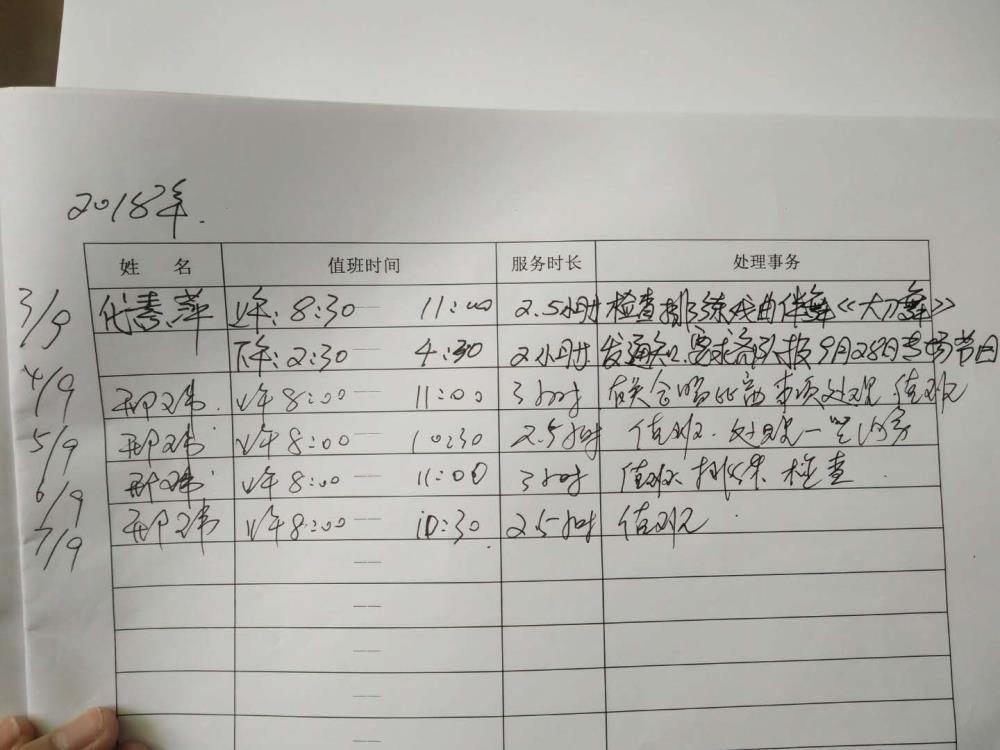 2018年.
姓 名 值班时间 服务时长 处理事务
3/9 代素萍 上午:8:30 — 11:00 2.5小时 检查排练戏曲伴舞《大刀舞》
下午:2:30 — 4:30 2小时 发通知.要求部队报9月28日专场节目
4/9 上午8:00 — 11:00 3小时 有关合唱 事项处理 值班
5/9 上午8:00 — 10:30 2.5小时 值班.处理一些
6/9 上午8:00 — 11:00 3小时 值班 排练 检查
7/9 上午8:00 — 10:30 2.5小时 值班